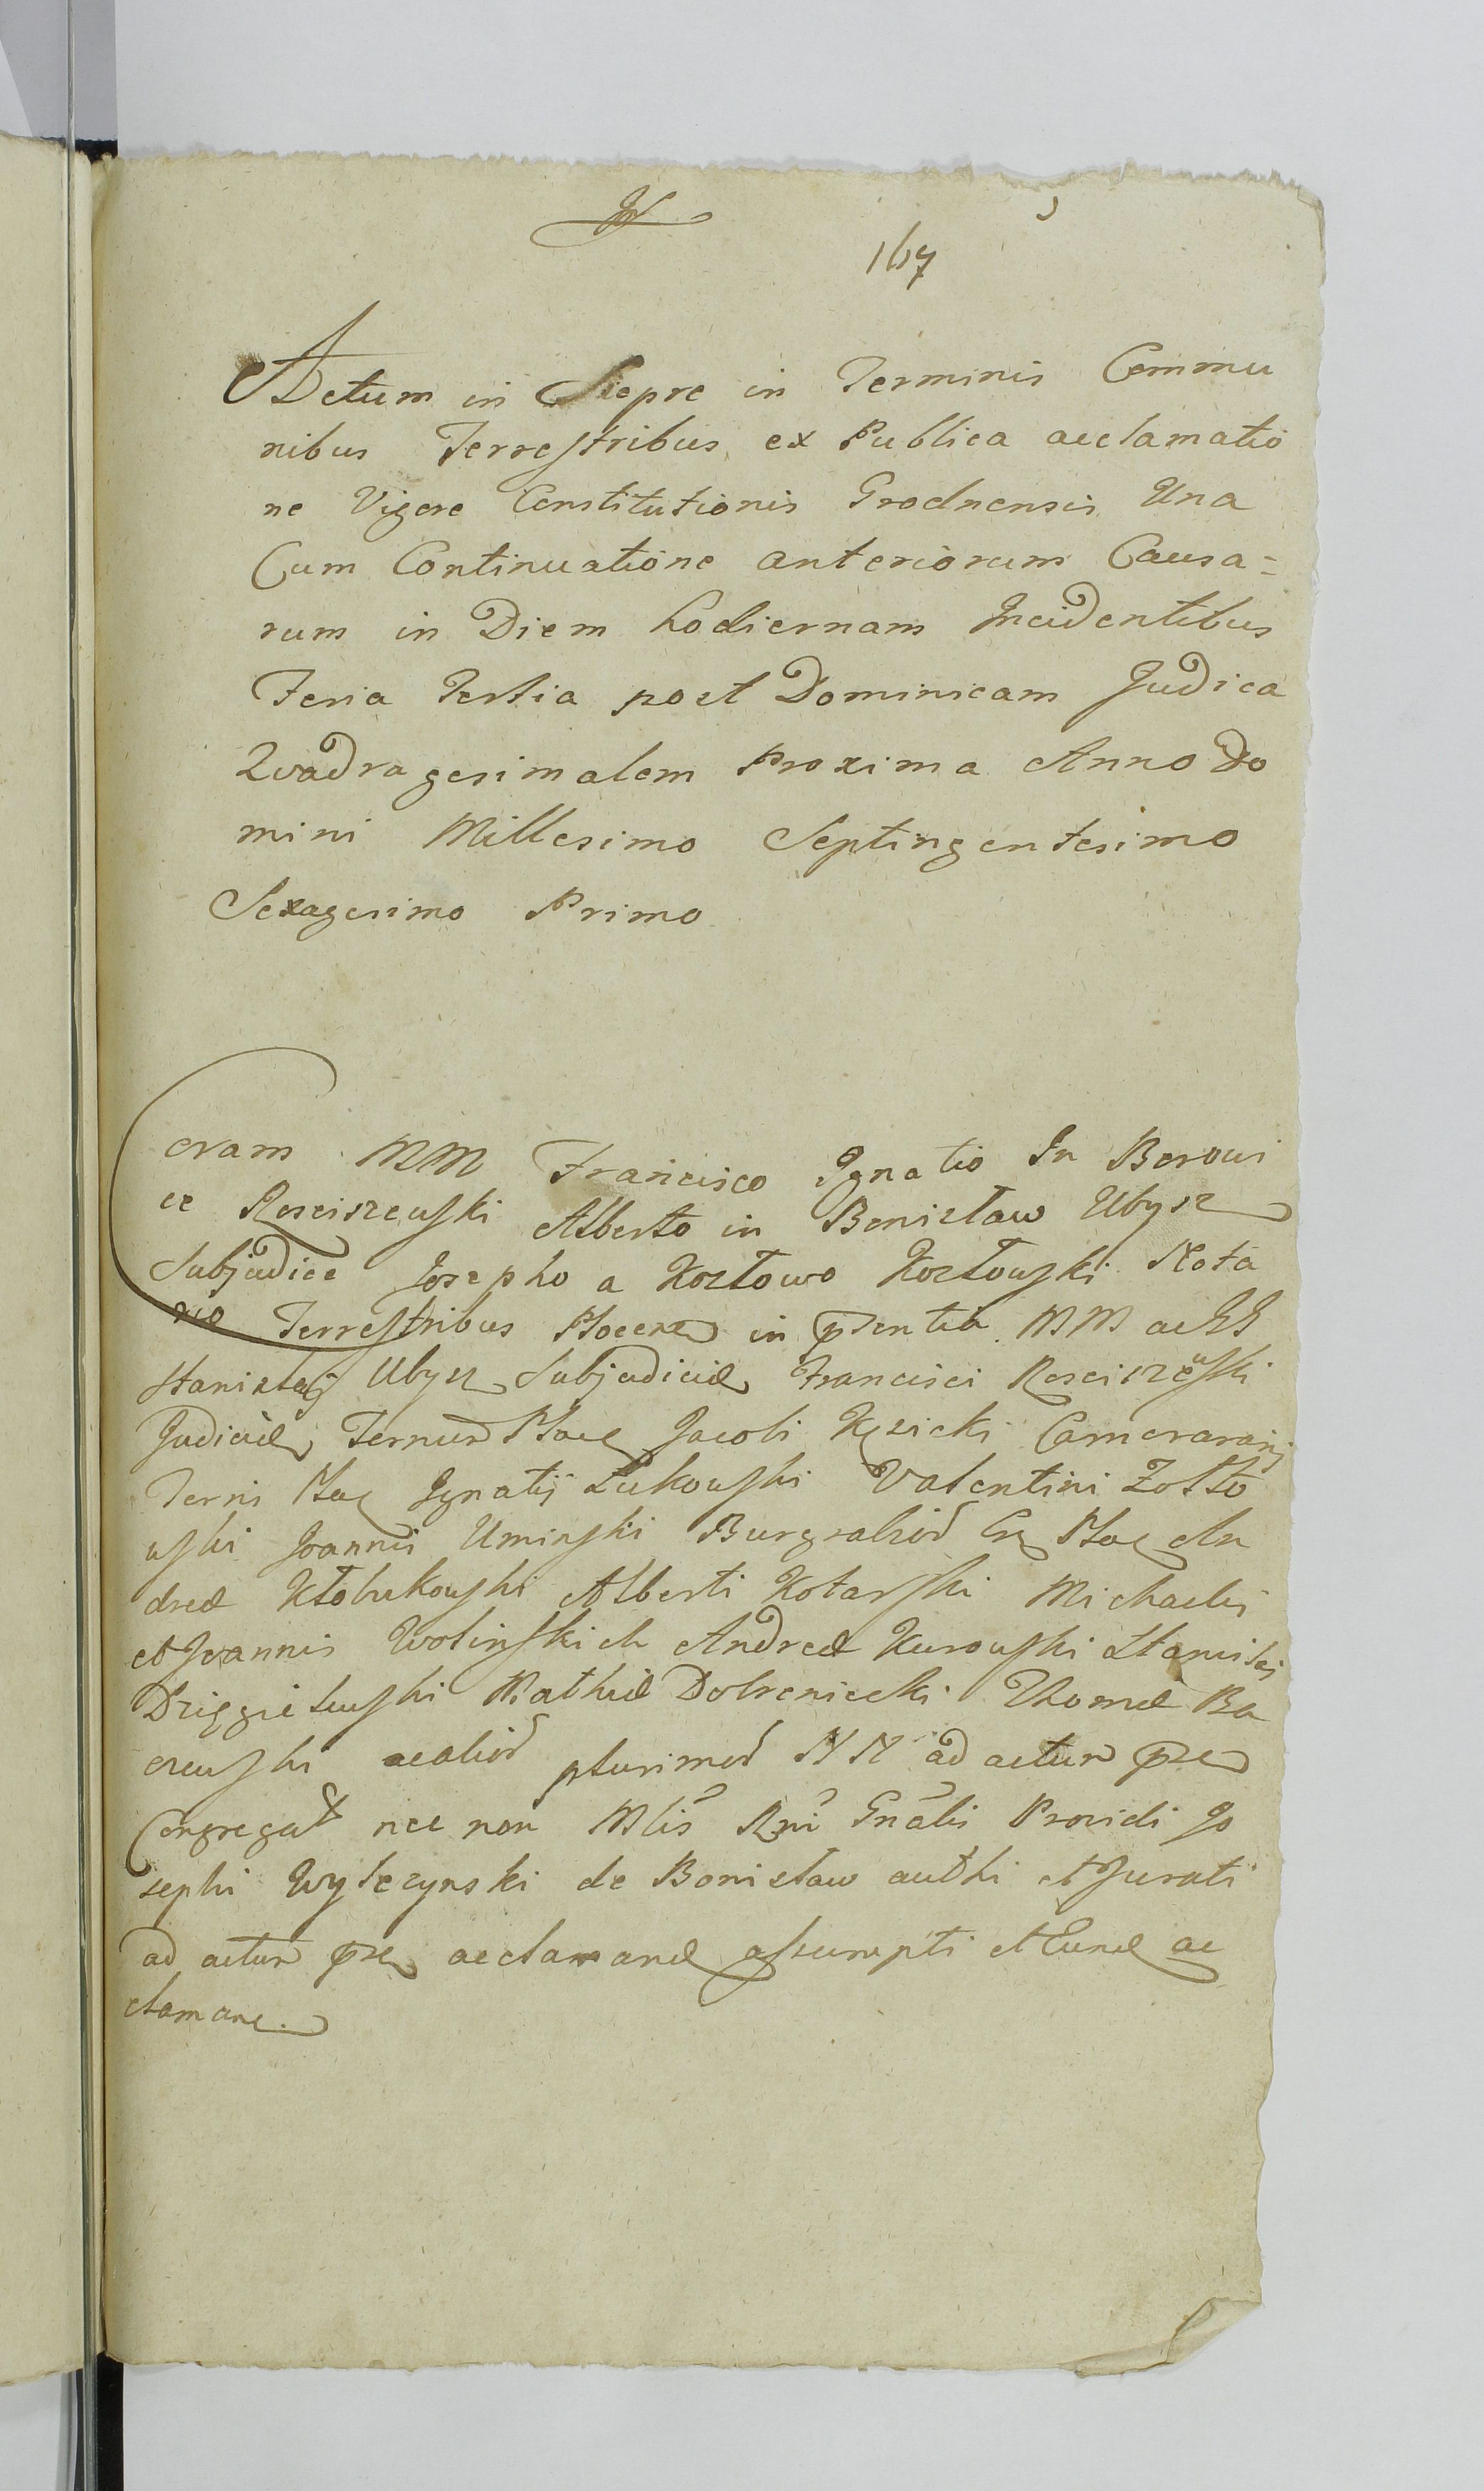 167
Actum in Siepre in Terminis Commu
nibus Terrestribus ex Publica acclamatio
ne Vigore Constitutionis Grodnensis Una
Cum Continuatione anteriorum Causa=
rum in Diem hodiernam Incidentibus
Feria Tertia post Dominicam Judica
Quadragesimalem Proxima Anno Do
mini Millesimo Septingentesimo
Sexagesimo Primo
Coram MM Francisco Ignatio In Borowi
ce Rosciszewski Alberto in Bonisław Ubysz
Subjudice Josepho a Kozłowo Kozłowski Nota
rio Terrestribus Plocen in pñtentia MM ac GG
Stanislaj Ubysz Subjudicid Francisci Rosciszewski
Judicid Terrur Ploc Jacobi Kęsicki Camerararij
Terri Ploc Ignatij Łukowski Valentini Zołto
wski Joannis Uminski Burgrabior Cr Ploc An
dreæ Kłobukowski Alberti Kotarski Michaelis
et Joannis Wolinskich Andreæ Kurowski Stanislai
Dziggielewski Mathiæ Dobrzeniecki Thomæ Ba
czewski acalior plurimor NN ad actum
Congregat nec non Mlis Rni Gnalis Providi Jo
sephi Wylezynski de Bonisław authi et Jurati
ad actum acclamand assumpti et Eund ac
clamanc.